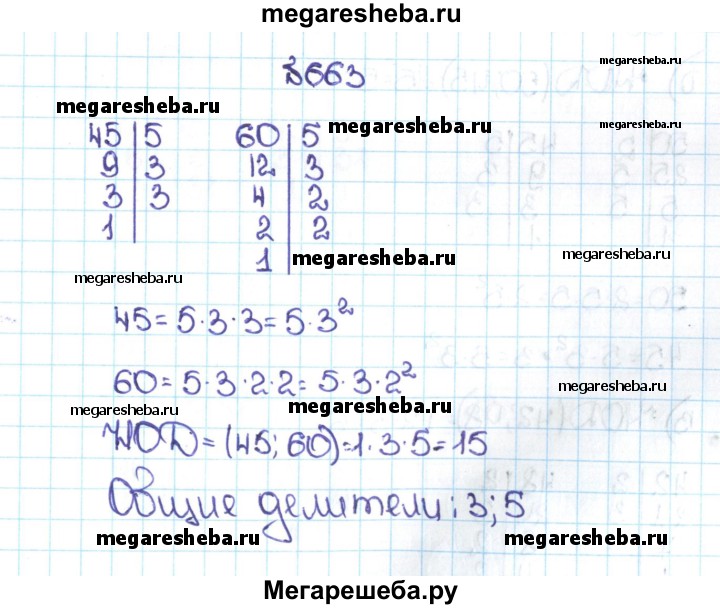 megaresheba.ru
№663
megaresheba.ru
megaresheba.ru
megaresheba.ru
megaresheba.ru
45 | 5
9 | 3
3 | 3
1 |
60 | 5
12 | 3
4 | 2
2 | 2
1 |
megaresheba.ru
megaresheba.ru
megaresheba.ru
45 = 5·3·3 = 5·3²
60 = 5·3·2·2 = 5·3·2²
megaresheba.ru
megaresheba.ru
megaresheba.ru
НОД = (45; 60) = 1·3·5 = 15
Общие делители: 3; 5
megaresheba.ru
megaresheba.ru
Мегарешеба.ру